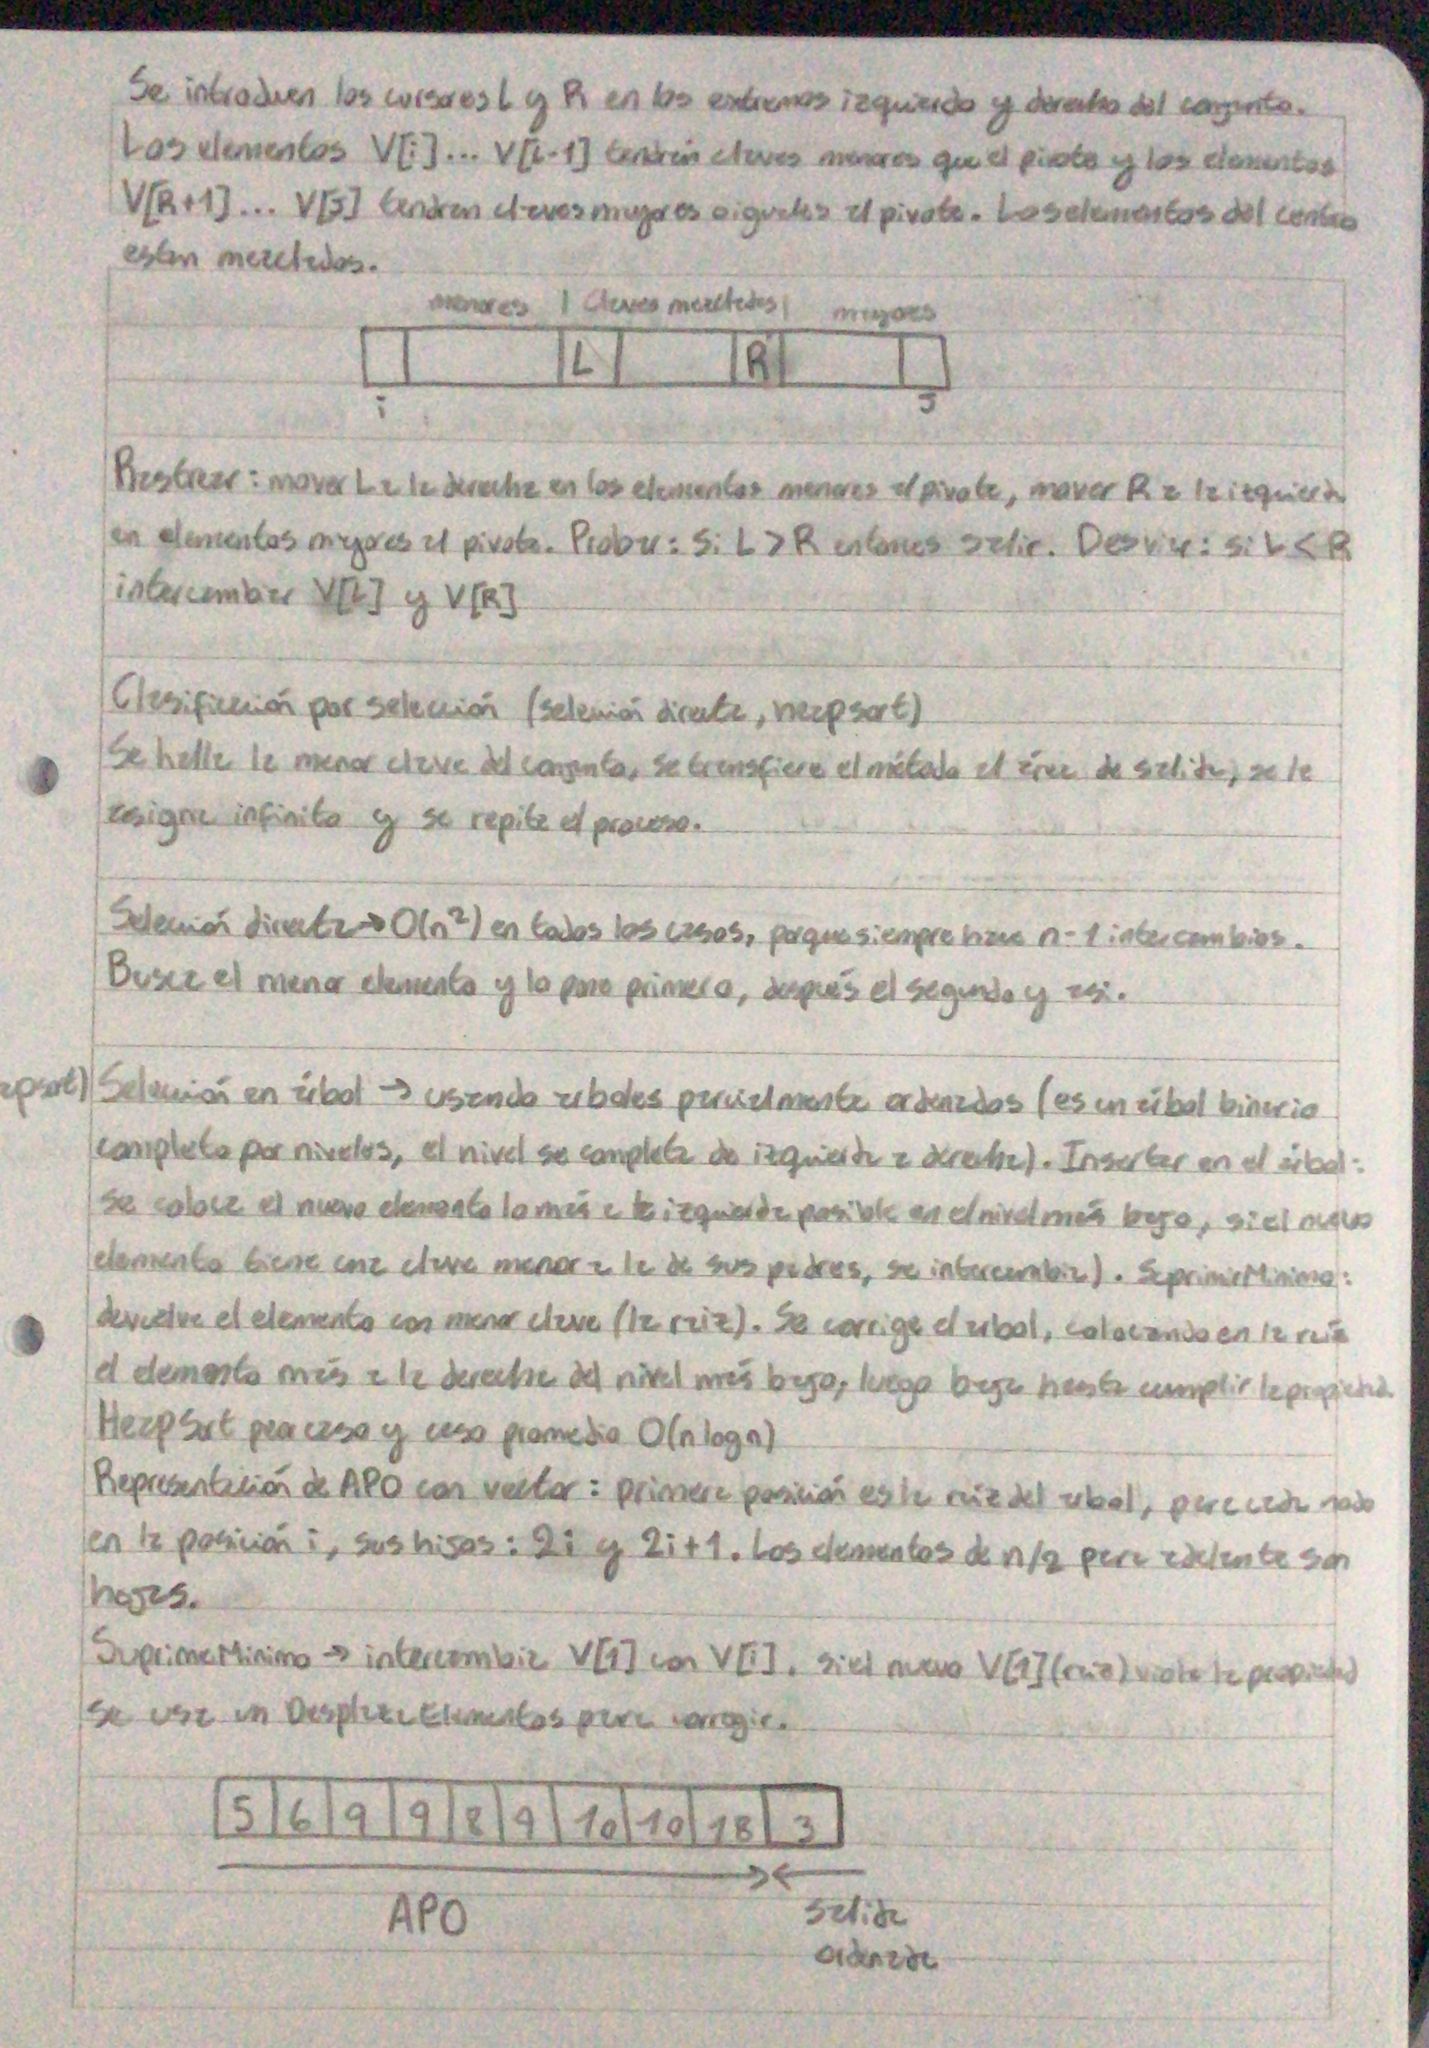 Se introducen los cursores L y R en los extremos izquierdo y derecho del conjunto.
Los elementos V[i]... V[L-1] tendrán claves menores que el pivote y los elementos
V[R+1]... V[J] tendrán claves mayores o iguales al pivote. Los elementos del centro
estan mezclados.
menores | Claves mezcladas | mayores
L R
i J
Rastrear: mover L a la derecha en los elementos menores al pivote, mover R a la izquierda
en elementos mayores al pivote. Probar: Si L > R entonces salir. Desviar: si L < R
intercambiar V[L] y V[R]
Clasificación por selección (selección directa, heapsort)
Se halla la menor clave del conjunto, se transfiere el método al área de salida, se le
asigna infinito y se repite el proceso.
Selección directa → O(n²) en todos los casos, porque siempre hace n-1 intercambios.
Busca el menor elemento y lo pone primero, después el segundo y asi.
apsort) Selección en árbol → usando arboles parcialmente ordenados (es un árbol binario
completo por niveles, el nivel se completa de izquierda a derecha). Insertar en el árbol:
se coloca el nuevo elemento lo más a la izquierda posible en el nivel más bajo, si el nuevo
elemento tiene una clave menor a la de sus padres, se intercambia). SuprimeMinimo:
devuelve el elemento con menor clave (la raiz). Se corrige el arbol, colocando en la raiz
el elemento más a la derecha del nivel más bajo, luego baja hasta cumplir la propiedad.
HeapSort peor caso y caso promedio O(n log n)
Representación de APO con vector: primera posición es la raiz del arbol, para cada nodo
en la posición i, sus hijos: 2i y 2i+1. Los elementos de n/2 para adelante son
hojas.
SuprimeMinimo → intercambia V[1] con V[i]. si el nuevo V[1] (raiz) viola la propiedad
se usa un DesplazaElementos para corregir.
5 6 9 9 8 9 10 10 18 3
APO salida
ordenada